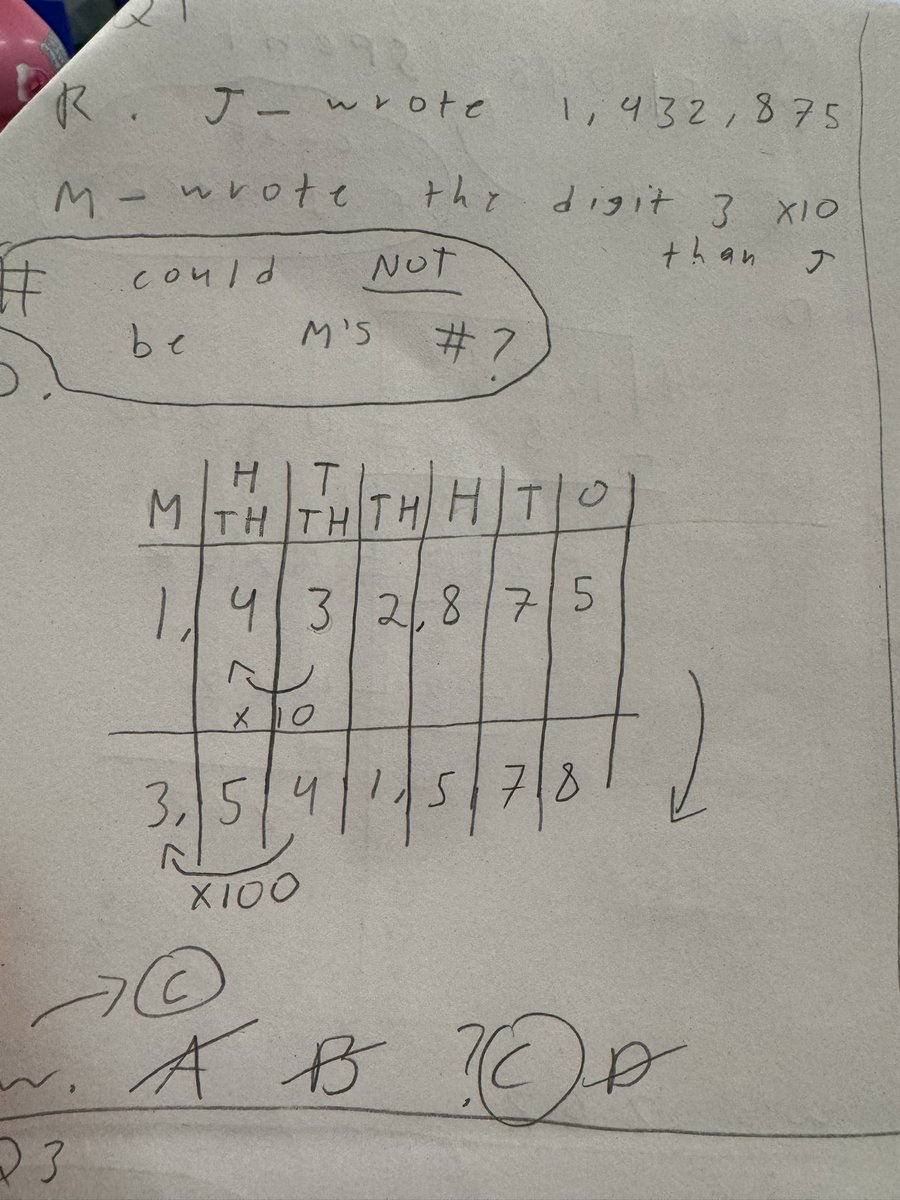 Q1
R. J- wrote 1,432,875
M- wrote the digit 3 x10
than J
# could NOT
be M's #?
O.
M | H TH | T TH | TH | H | T | O
1, | 4 | 3 | 2, | 8 | 7 | 5
x 10
3, | 5 | 4 | 1, | 5 | 7 | 8
x100
→ C
w. A B ? C D
Q3